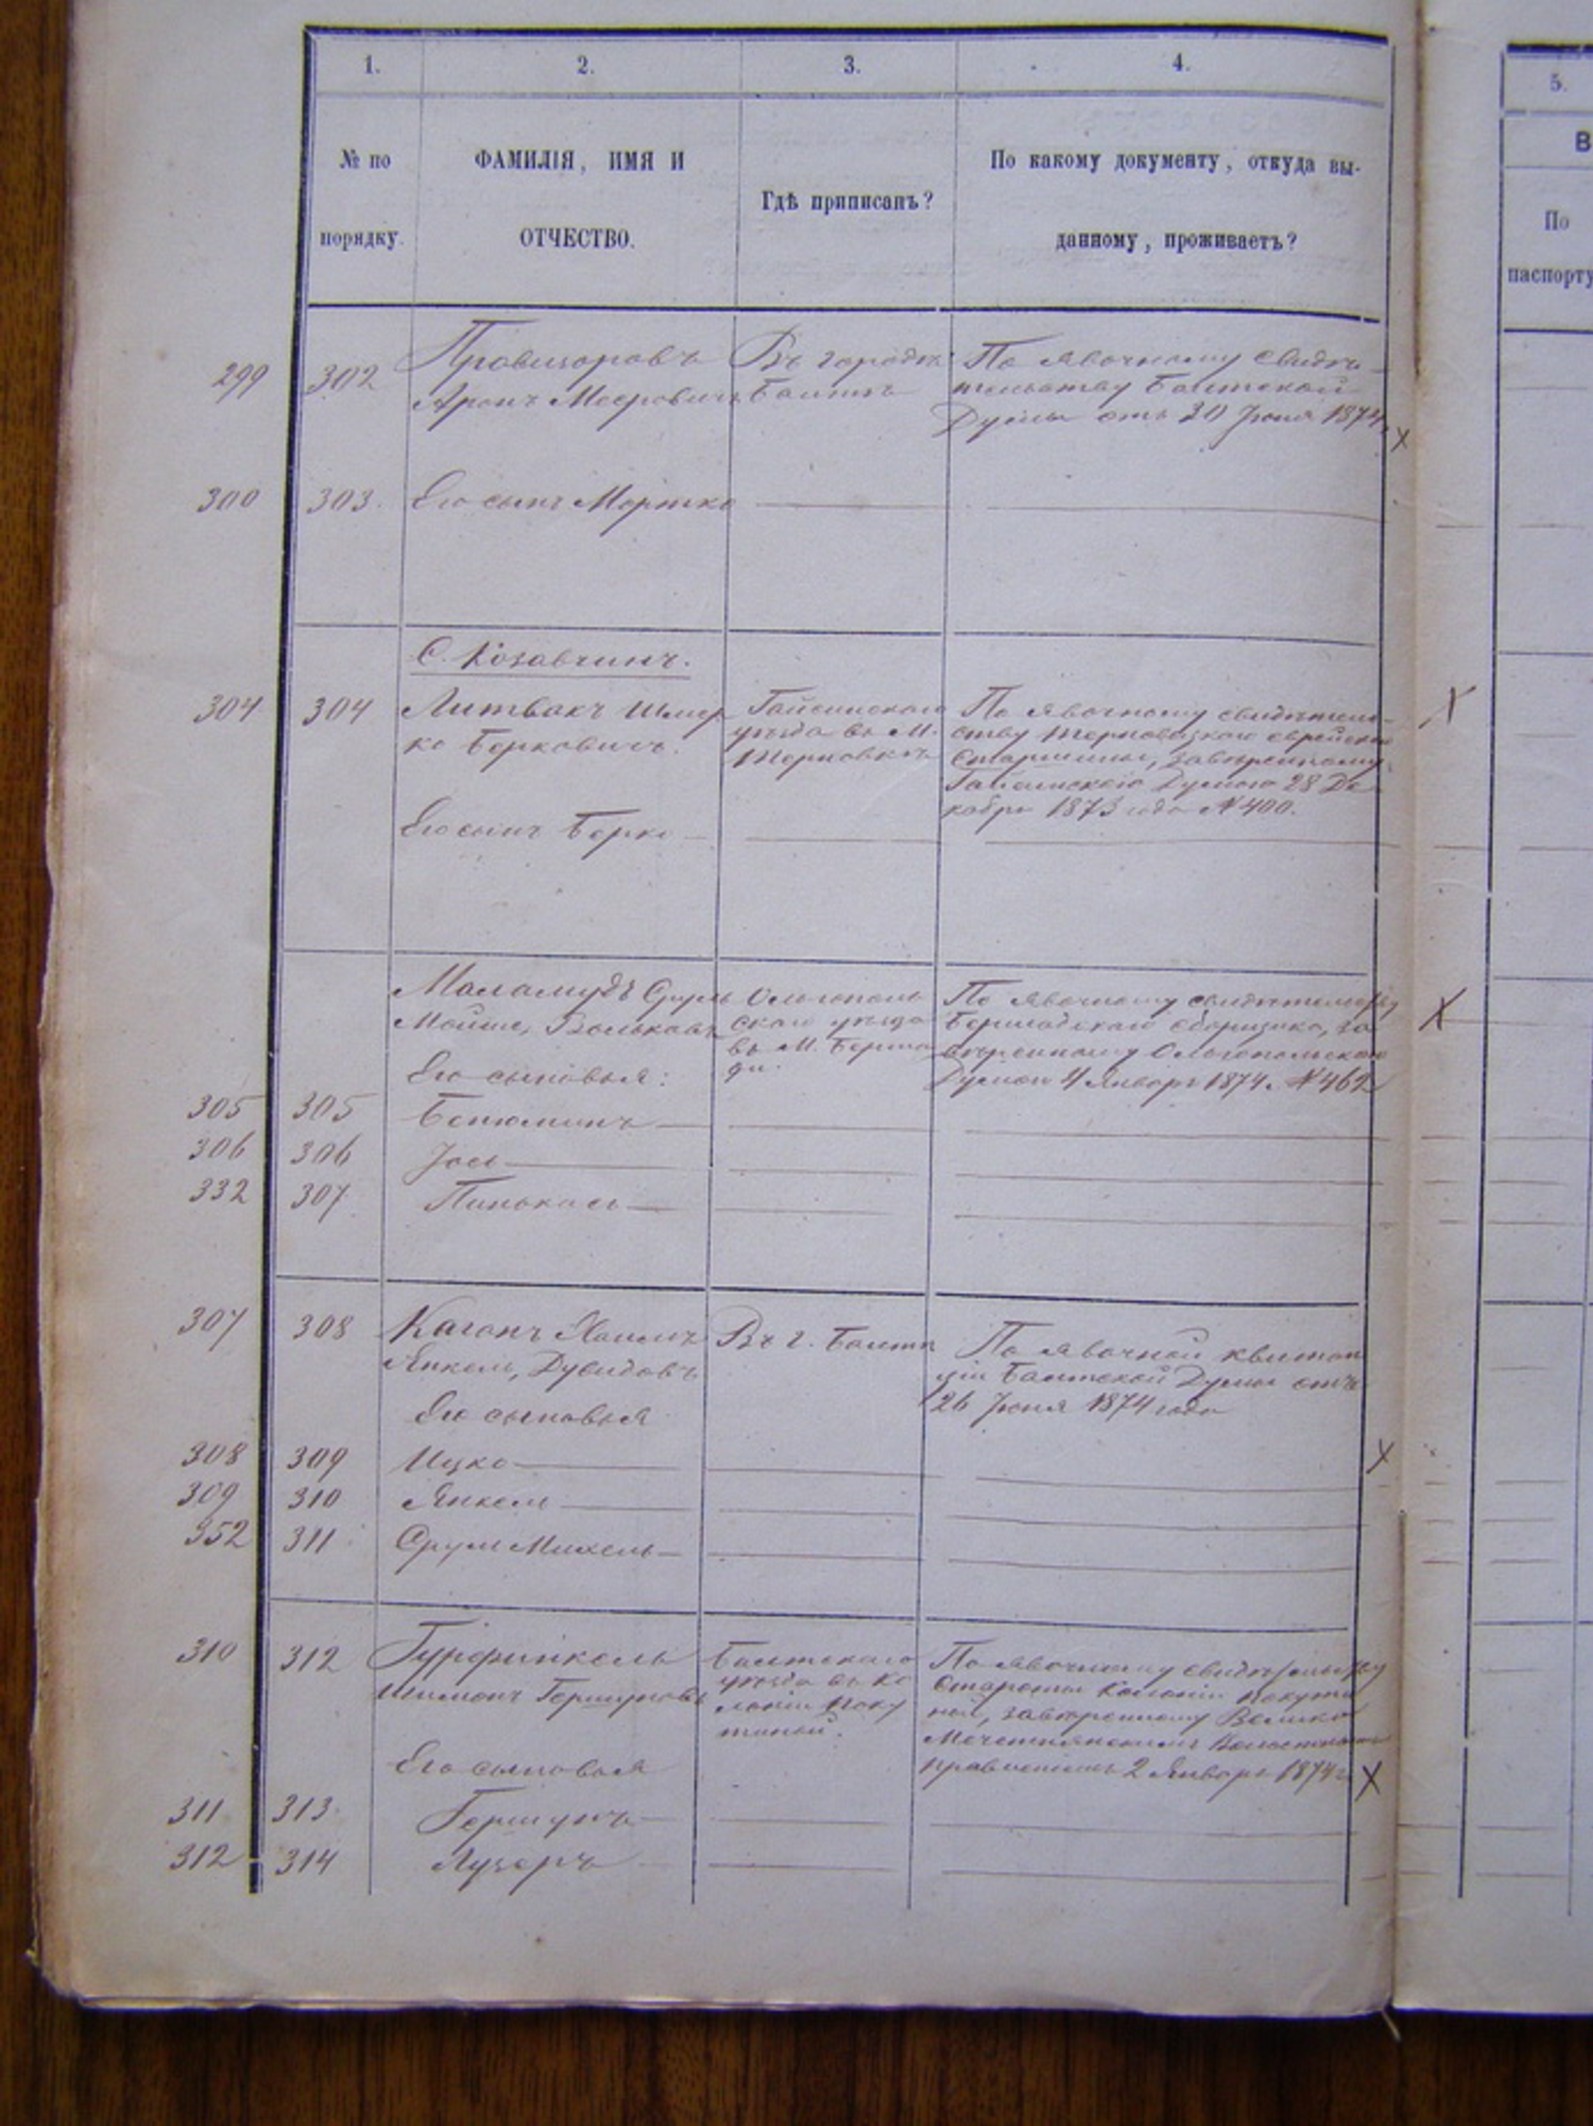 1. 2. 3. 4. 5.
№ по порядку.
ФАМИЛІЯ, ИМЯ И
ОТЧЕСТВО.
Гдѣ приписанъ?
По какому документу, откуда вы-
данному, проживаетъ?
В
По
паспорту
299 302 Провизоровъ
Аронъ Мееровичъ
Въ городѣ
Балтѣ
По явочному свидѣ-
тельству Балтской
Думы отъ 20 Іюня 1874
300 303. Его сынъ Мортко
С. Козавчинъ.
304 304 Литвакъ Шмер
ко Берковичъ.
Гайсинскаго
уѣзда въ М.
Терновкѣ
По явочному свидѣтель-
ству Терновскаго еврейск
Старшины, завѣренному
Гайсинскою Думою 28 Де
кабря 1873 года №400.
Его сынъ Берко
Маламудъ Сруль
Мойше, Вольковъ
Ольгополь
скаго уѣзда
въ М. Берша
ди.
По явочному свидѣтельству
Бершадскаго сборщика, за
вѣренному Ольгопольскою
Думою 4 Января 1874. №462
Его сыновья:
305 305 Бенюминъ
306 306 Іось
332 307 Пинькась
307 308 Каганъ Хаимъ
Янкель, Дувидовъ
Въ г. Балтѣ
По явочной квитан
ціи Балтской Думы отъ
26 Іюня 1874 года
Его сыновья
308 309 Ицко
309 310 Янкель
352 311 Сруль Михель
310 312 Гурфинкель
Шимонъ Гершуновъ
Балтскаго
уѣзда въ Ко
лоніи Поку
тиной.
По явочному свидѣтельству
Старосты Колоніи Покути
ной, завѣренному Велико
Мечетнянскимъ Волостнымъ
правленіемъ 2 Января 1874 г.
Его сыновья
311 313 Гершунъ
312 314 Лузеръ